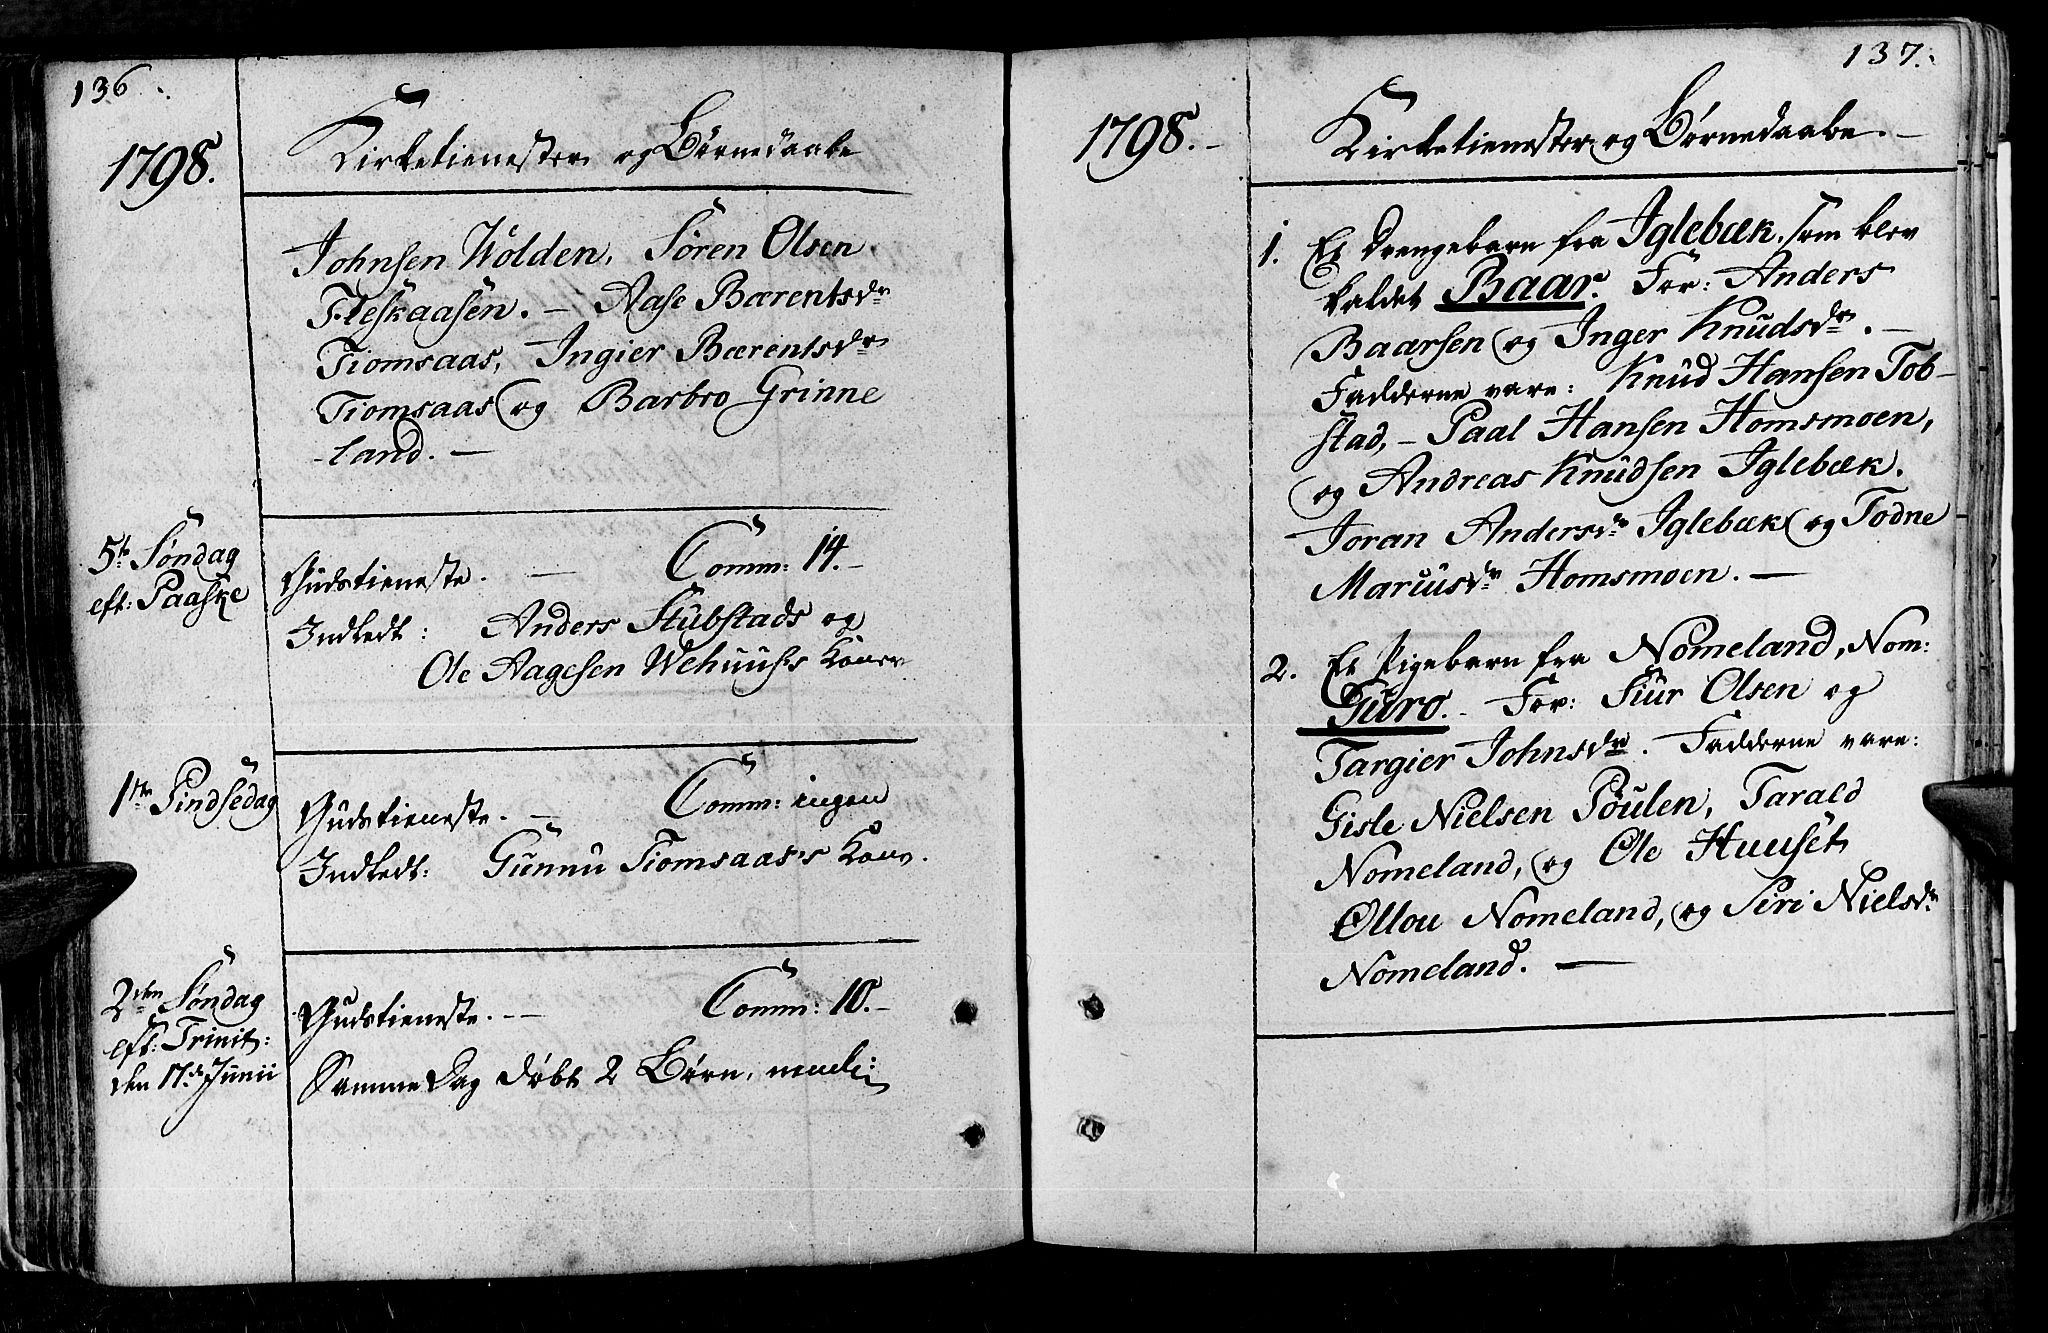 136
1798.
Kirketienester og Børnedaabe
Johnsen Wolden, Søren Olsen
Fleskaasen. – Aase Bærentsdr
Tiomsaas, Ingier Bærentsdr
Tiomsaas og Barbro Grinne
-land. –
5te Søndag
eft: Paaske
Gudstieneste. – Comm: 14. –
Indledt: Anders Stubstads og
Ole Aagesen Wehuus's Koner
1ste Pindsedag
Gudstieneste. – Comm: ingen
Indledt: Gunnu Tiomsaas's Kone.
2den Søndag
eft: Trinit:
den 17de Junii
Gudstieneste. – – Comm: 10. –
Samme Dag døbt 2 Børn, nemli:
137.
1798. –
Kirketienester og Børnedaabe. –
1. Et Drengebarn fra Iglebæk, som blev
kaldet Baar. For: Anders
Baarsen og Inger Knudsdr. –
Fadderne vare: Knud Hansen Tob-
stad, – Paal Hansen Homsmoen,
og Andreas Knudsen Iglebæk.
Joran Andersdr Iglebæk og Todne
Marcusdr Homsmoen. –
2. Et Pigebarn fra Nomeland, Nom:
Guro. – For: Siur Olsen og
Targier Johnsdr. Fadderne vare:
Gisle Nielsen Poulen, Tarald
Nomeland, og Ole Huuset
Ollou Nomeland, og Siri Nielsdr
Nomeland. –